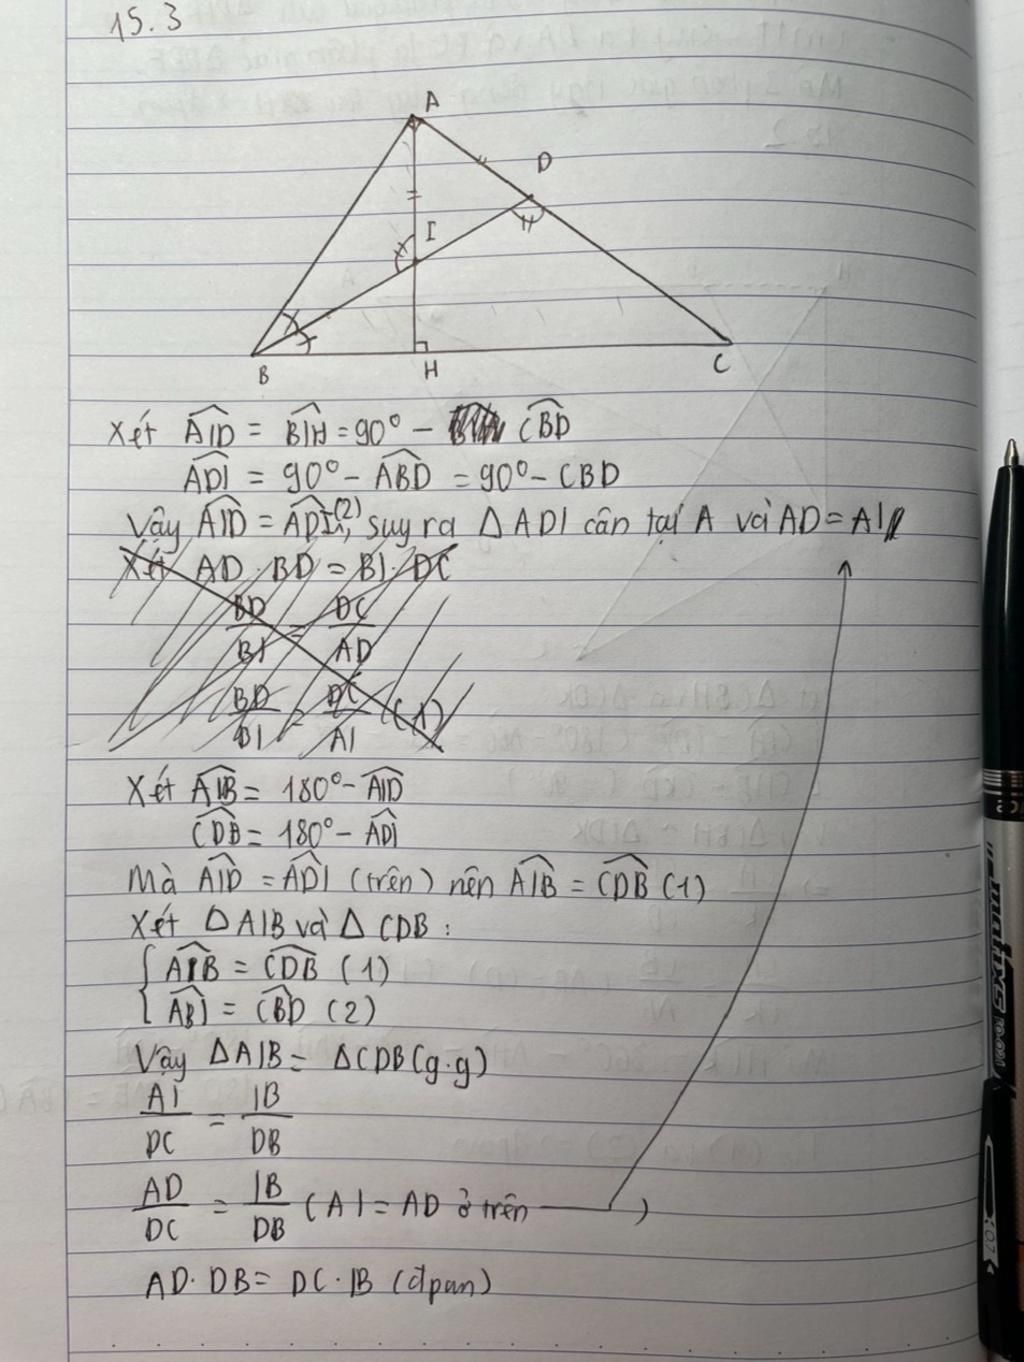 15.3
A
D
I
B
H
C
Xét AID = BIH = 90° - CBD
ADI = 90° - ABD = 90° - CBD
Vậy AID = ADI (2), suy ra △ADI cân tại A và AD = AI
Xét AD · BD = BI · DC
BD/BI = DC/AD
BD/DI = DC/AI (1)
Xét AIB = 180° - AID
CDB = 180° - ADI
Mà AID = ADI (trên) nên AIB = CDB (1)
Xét △AIB và △CDB :
{ AIB = CDB (1)
ABI = CBD (2)
Vậy △AIB = △CDB (g.g)
AI/DC = IB/DB
AD/DC = IB/DB (AI = AD ở trên)
AD · DB = DC · IB (đpcm)